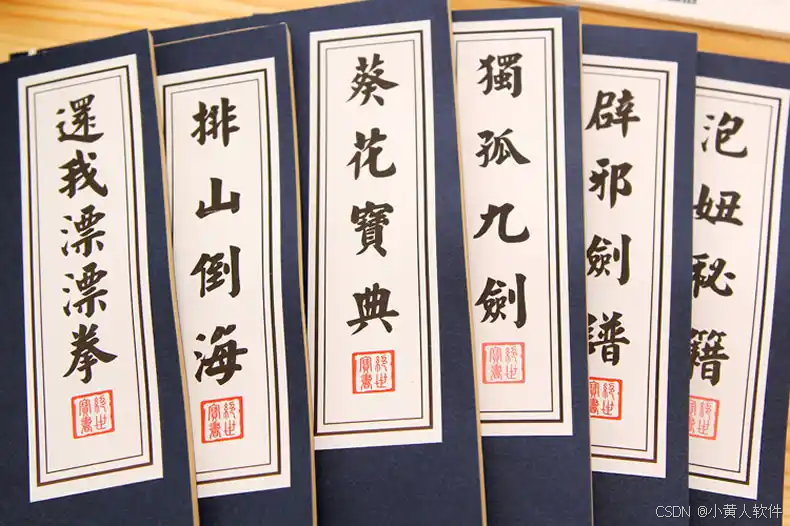 還我漂漂拳
絕世寶書
排山倒海
絕世寶書
葵花寶典
絕世寶書
獨孤九劍
絕世寶書
辟邪劍譜
絕世寶書
泡妞秘籍
絕世寶書
CSDN @小黄人软件